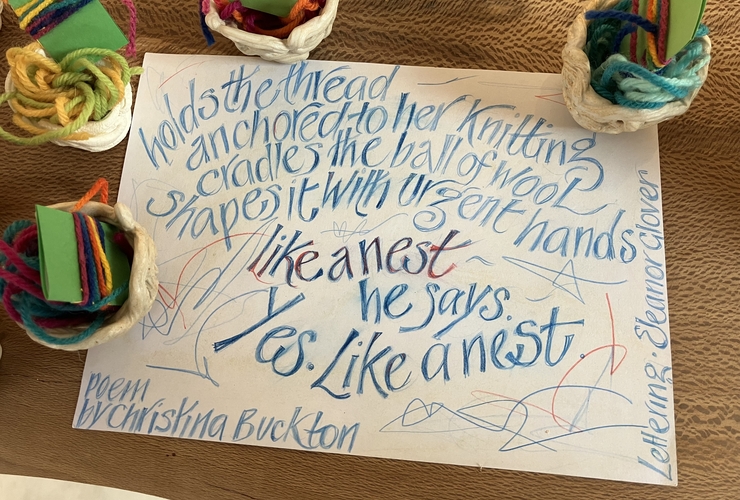 holds the thread
anchored to her knitting
cradles the ball of wool
shapes it with urgent hands
like a nest
he says.
Yes. Like a nest.
poem
by christina Buckton
Lettering. Eleanor Glover